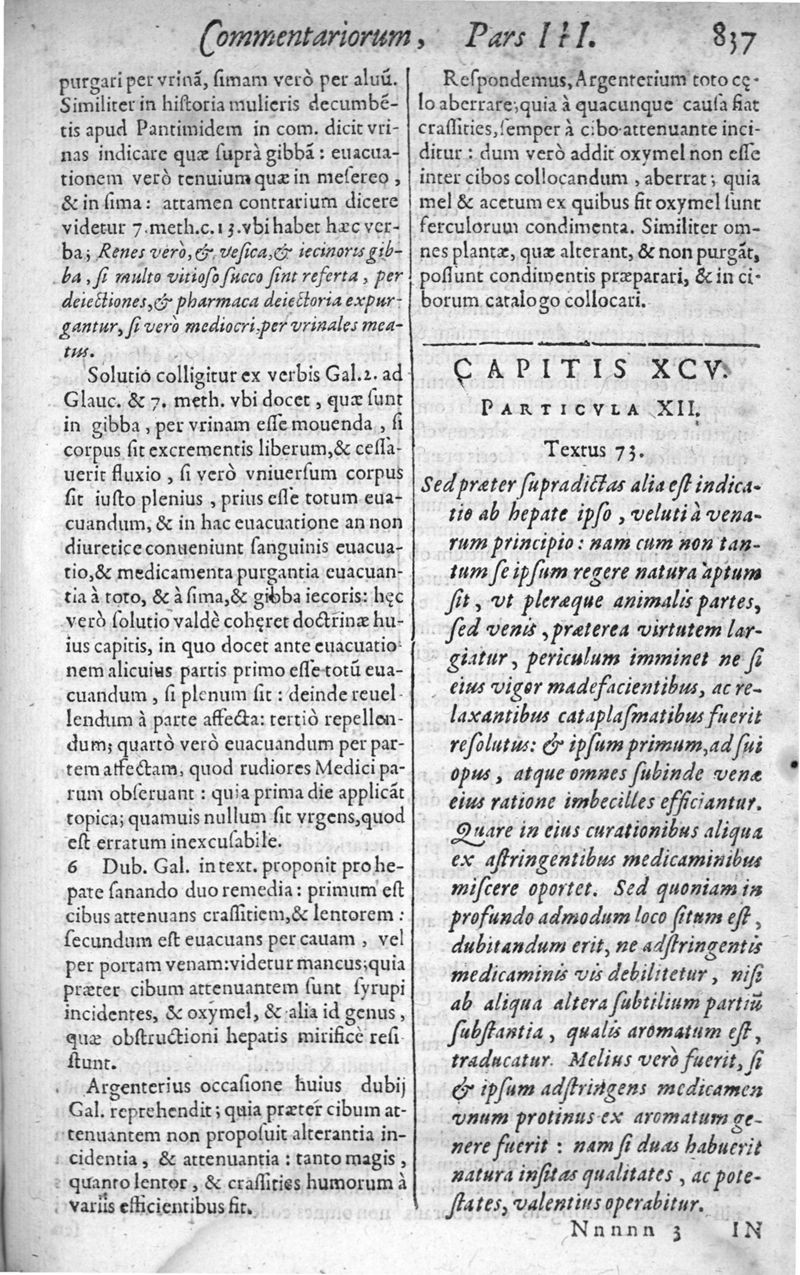 Commentariorum, Pars III. 837
purgari per vrinã, ſimam verò per aluũ.
Similiter in hiſtoria mulieris decumbē-
tis apud Pantimidem in com. dicit vri-
nas indicare quæ ſuprà gibbã: euacua-
tionem verò tenuium quæ in meſereo,
& in ſima: attamen contrarium dicere
videtur 7. meth. c. 13. vbi habet hæc ver-
ba; Renes verò, & veſica, & iecinoris gib-
ba, ſi multo vitioſo ſucco ſint referta, per
deiectiones, & pharmaca deiectoria expur-
gantur, ſi verò mediocri. per vrinales mea-
tus.
Solutio colligitur ex verbis Gal. 2. ad
Glauc. & 7. meth. vbi docet, quæ ſunt
in gibba, per vrinam eſſe mouenda, ſi
corpus ſit excrementis liberum, & ceſſa-
uerit fluxio, ſi verò vniuerſum corpus
ſit iuſto plenius, prius eſſe totum eua-
cuandum, & in hac euacuatione an non
diuretice conueniunt ſanguinis euacua-
tio, & medicamenta purgantia euacuan-
tia à toto, & à ſima, & gibba iecoris: hęc
verò ſolutio valdè cohęret doctrinæ hu-
ius capitis, in quo docet ante euacuatio-
nem alicuius partis primo eſſe totũ eua-
cuandum, ſi plenum ſit: deinde reuel-
lendum à parte affecta: tertiò repellen-
dum; quartò verò euacuandum per par-
tem affectam, quod rudiores Medici pa-
rum obſeruant: quia prima die applicãt
topica; quamuis nullum ſit vrgens, quod
eſt erratum inexcuſabile.
6 Dub. Gal. in text. proponit pro he-
pate ſanando duo remedia: primum eſt
cibus attenuans craſſitiem, & lentorem:
ſecundum eſt euacuans per cauam, vel
per portam venam: videtur mancus; quia
præter cibum attenuantem ſunt ſyrupi
incidentes, & oxymel, & alia id genus,
quæ obſtructioni hepatis mirificè reſi-
ſtunt.
Argenterius occaſione huius dubij
Gal. reprehendit; quia præter cibum at-
tenuantem non propoſuit alterantia in-
cidentia, & attenuantia: tanto magis,
quanto lentor, & craſſities humorum à
variis efficientibus fit.
Reſpondemus, Argenterium toto cę-
lo aberrare; quia à quacunque cauſa fiat
craſſities, ſemper à cibo attenuante inci-
ditur: dum verò addit oxymel non eſſe
inter cibos collocandum, aberrat; quia
mel & acetum ex quibus fit oxymel ſunt
ferculorum condimenta. Similiter om-
nes plantæ, quæ alterant, & non purgãt,
poſſunt condimentis præparari, & in ci-
borum catalogo collocari.
CAPITIS XCV.
PARTICVLA XII.
Textus 73.
Sed præter ſupradictas alia eſt indica-
tio ab hepate ipſo, veluti à vena-
rum principio: nam cum non tan-
tum ſe ipſum regere natura aptum
ſit, vt pleræque animalis partes,
ſed venis, præterea virtutem lar-
giatur, periculum imminet ne ſi
eius vigor madefacientibus, ac re-
laxantibus cataplaſmatibus fuerit
reſolutus: & ipſum primum, ad ſui
opus, atque omnes ſubinde venæ
eius ratione imbecilles efficiantur.
Quare in eius curationibus aliqua
ex aſtringentibus medicaminibus
miſcere oportet. Sed quoniam in
profundo admodum loco ſitum eſt,
dubitandum erit, ne adſtringentis
medicaminis vis debilitetur, niſi
ab aliqua altera ſubtilium partiũ
ſubſtantia, qualis aromatum eſt,
traducatur. Melius verò fuerit, ſi
& ipſum adſtringens medicamen
vnum protinus ex aromatum ge-
nere fuerit: nam ſi duas habuerit
natura inſitas qualitates, ac pote-
ſtates, valentius operabitur.
Nnnnn 3 IN